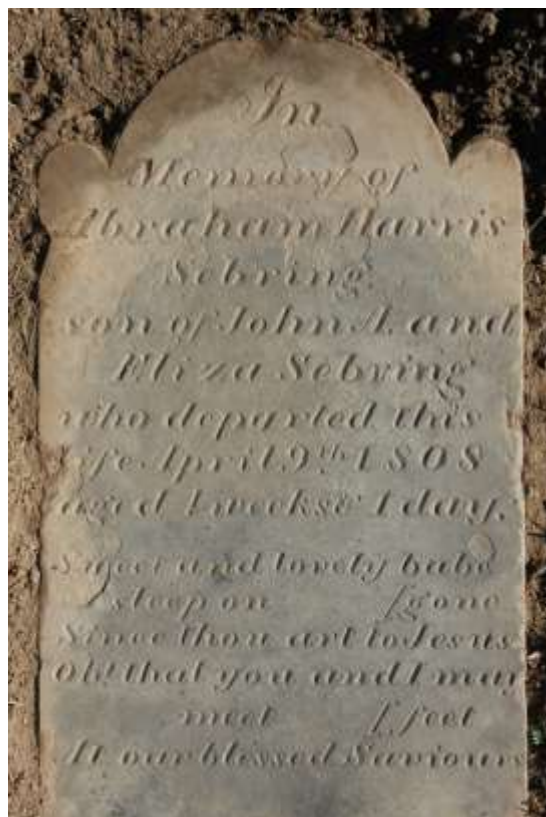 In
Memory of
Abraham Harris
Sebring
son of John A. and
Eliza Sebring
who departed this
life April 9th 1808
aged weeks & 1 day.
Sweet and lovely babe
sleep on [gone
Since thou art to Jesus
Oh! that you and I may
meet [feet
At our blessed Saviours